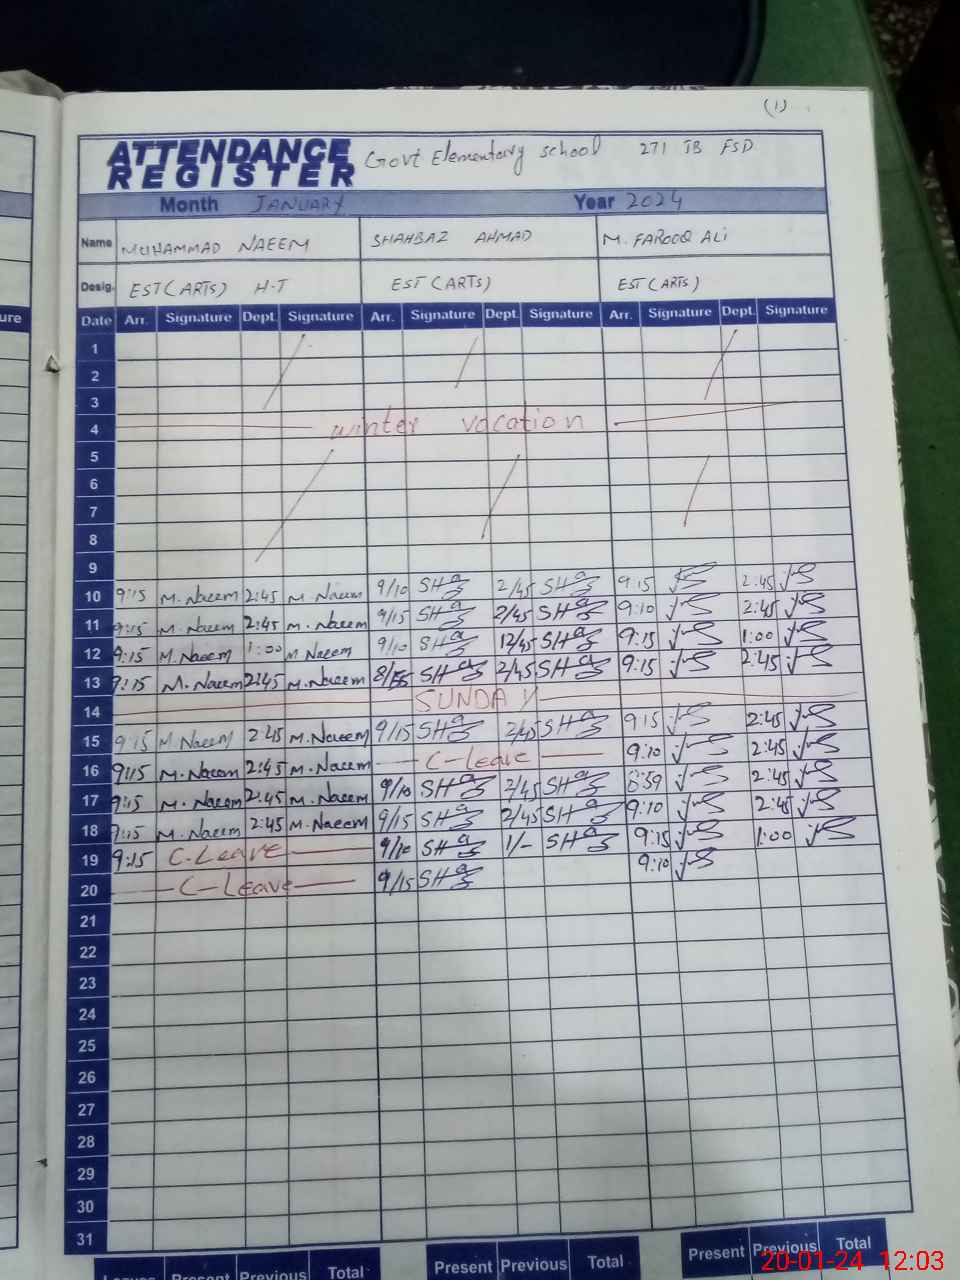 (1)
ATTENDANCE REGISTER Govt Elementary school 271 JB FSD
Month JANUARY Year 2024
Name MUHAMMAD NAEEM SHAHBAZ AHMAD M. FAROOQ ALI
Desig. EST (ARTS) H-T EST (ARTS) EST (ARTS)
ure Date Arr. Signature Dept. Signature Arr. Signature Dept. Signature Arr. Signature Dept. Signature
1
2
3
4 winter vacation
5
6
7
8
9
10 9:15 M. Naeem 2:45 M. Naeem 9/10 SH 2/45 SH 9:15 2:45
11 9:15 M. Naeem 2:45 M. Naeem 9/15 SH 2/45 SH 9:10 2:45
12 9:15 M. Naeem 1:00 M Naeem 9/10 SH 12/45 SH 9:15 1:00
13 9:15 M. Naeem 2:45 M. Naeem 8/55 SH 2/45 SH 9:15 2:45
14 SUNDAY
15 9:15 M Naeem 2:45 M. Naeem 9/15 SH 2/45 SH 9:15 2:45
16 9:15 M. Naeem 2:45 M. Naeem C-Leave 9:10 2:45
17 9:15 M. Naeem 2:45 M. Naeem 9/10 SH 2/45 SH 8:59 2:45
18 9:15 M. Naeem 2:45 M. Naeem 9/15 SH 2/45 SH 9:10 2:45
19 9:15 C.Leave 9/10 SH 1/- SH 9:15 1:00
20 C-Leave 9/15 SH 9:10
21
22
23
24
25
26
27
28
29
30
31
Leaves Present Previous Total Present Previous Total Present Previous Total
20-01-24 12:03